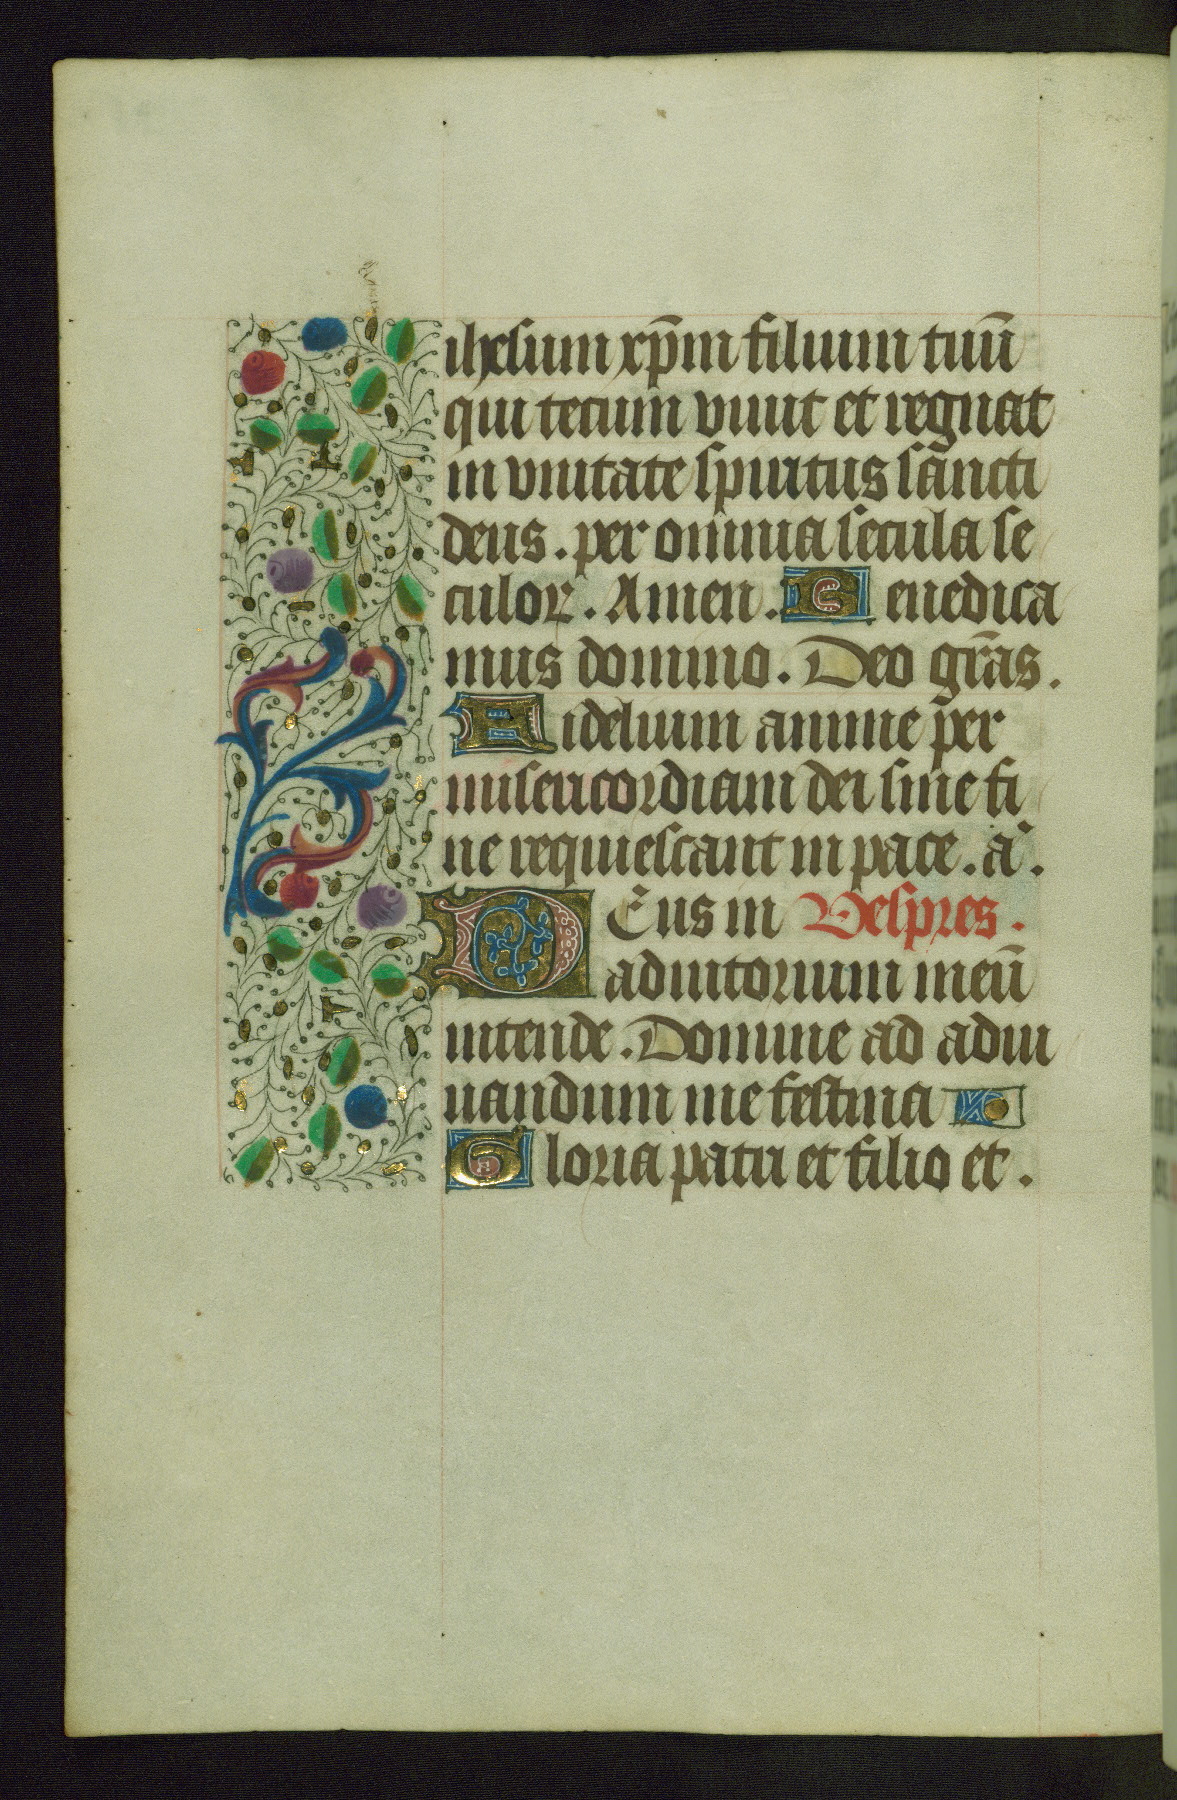 ihesum xp̄m filium tuū
qui tecum viuit et regnat
in vnitate spiritus sancti
deus. per omnia secula se
culoꝝ. Amen. Benedica
mus domino. Deo gr̄as.
Fidelium anime per
misericordiam dei sine fi
ne requiescant in pace. a͞.
Deus in Vespres.
adiutorium meū
intende. Domine ad adiu
uandum me festina
Gloria patri et filio et.